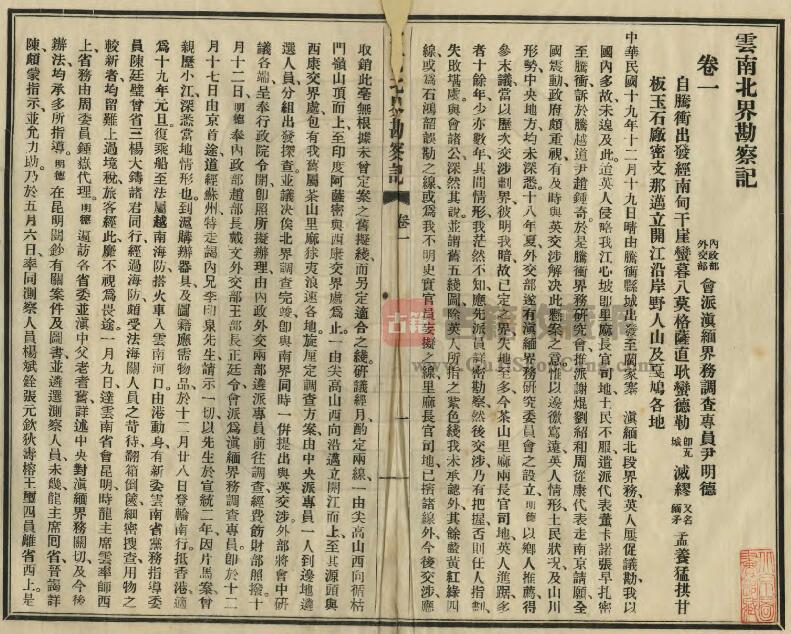 雲南北界勘察記
卷一
內政部
外交部
會派滇緬界務調查專員尹明德
自騰衝出發經南甸干崖蠻暮八莫格薩直耿蠻德勒
即瓦城
滅繆
又名緬矛
孟養猛拱甘
板玉石廠密支那邁立開江沿岸野人山及戞鳩各地
中華民國十九年十二月十九日晴由騰衝縣城出發至
滇緬北段界務英人屢促議勘我以
國內多故未遑及此迨英人侵略我江心坡即里麻長官司地土民不服遣派代表董卡諾張早扎密
至騰衝訴於騰越道尹趙鍾奇於是騰衝界務研究會推派謝焜劉紹和周從康代表走南京請願全
國震動政府頗重視有及時與英交涉解決此懸案之意惟以邊徼寫遠英人情形土民狀況及山川
形勢中央地方均未深悉十八年夏外交部遂有滇緬界務研究委員會之設立明德以鄉人推薦得
參末議當以歷次交涉劃界彼明我暗故已定之界失地已多今茶山里麻兩長官司地英人進踞多
者十餘年少亦數年其間情形我茫然不知應先派員詳密勘察然後交涉乃有把握否則任人指劃
失敗堪虞與會諸公深然其說並謂舊五綫圖除英人所指之紫色綫我未承認外其餘藍黃紅綠四
線或為石鴻韶誤勘之線或為我不明史實官員妄擬之線里麻長官司地已擠諸線外今後交涉應
取銷此毫無根據未曾定案之舊擬綫而另定適合之綫研議經月酌定兩線一由尖高山西向循枯
門嶺山頂而上至印度阿薩密與西康交界處為止一由尖高山西向沿邁立開江而上至其源頭與
西康交界處包有我舊屬茶山里麻俅夷浪速各地旋厘定調查方案由中央派專員一人到邊地遴
選人員分組出發探查並議决俟北界調查完竣即與南界同時一併提出與英交涉外部將會中研
議各端呈奉行政院令開即照所擬辦理由內政外交兩部遴派專員前往調查經費飭財部照撥十
月十二日明德奉內政部趙部長戴文外交部王部長正廷令會派為滇緬界務調查專員即於十二
月十七日由京首途道經蘇州特走謁內兄李印泉先生請示一切以先生於宣統二年因片馬案曾
親歷小江深悉當地情形也到滬購辦器具及圖籍應需物品於十二月廿八日登輪南行抵香港適
為十九年元旦復乘船至法屬越南海防搭火車入雲南河口由港動身有新委雲南省黨務指導委
員陳廷璧曾省三楊大鑄諸君同行經過海防頗受法海關人員之苛待翻箱倒篋細密搜查用物之
較新者均留難上過境稅旅客經此靡不視為畏途一月九日達雲南省會昆明時龍主席雲率師西
上省務由周委員鍾嶽代理明德遍訪各省委並滇中父老耆舊詳述中央對滇緬界務關切及今後
辦法均承多所指導明德在昆明閱鈔有關案件及圖書並遴選測察人員未幾龍主席囘省晉謁詳
陳頗蒙指示並允力助乃於五月六日率同測察人員楊斌銓張元欽狄壽榕王璽四員離省西上是
雲南北界勘察記
卷一
一
古籍